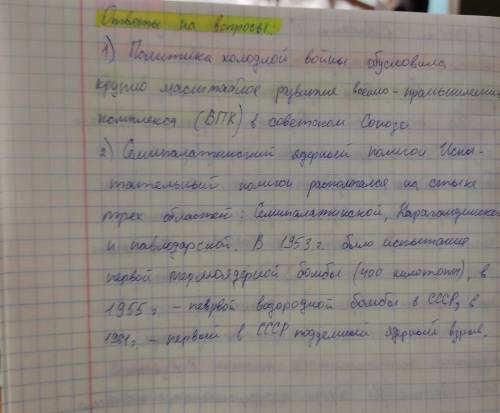 Ответы на вопросы:
1) Политика холодной войны обусловила
крупно масштабное развитие военно-промышленного
комплекса (ВПК) в советском Союзе
2) Семипалатинский ядерный полигон Испы-
тательный полигон располагался на стыке
трех областей: Семипалатинской, Карагандинской
и павлодарской. В 1953 г. было испытание
первой термоядерной бомбы (400 килотонн), в
1955 г. - первой водородной бомбы в СССР, в
1961 г. - первый в СССР подземный ядерный взрыв.